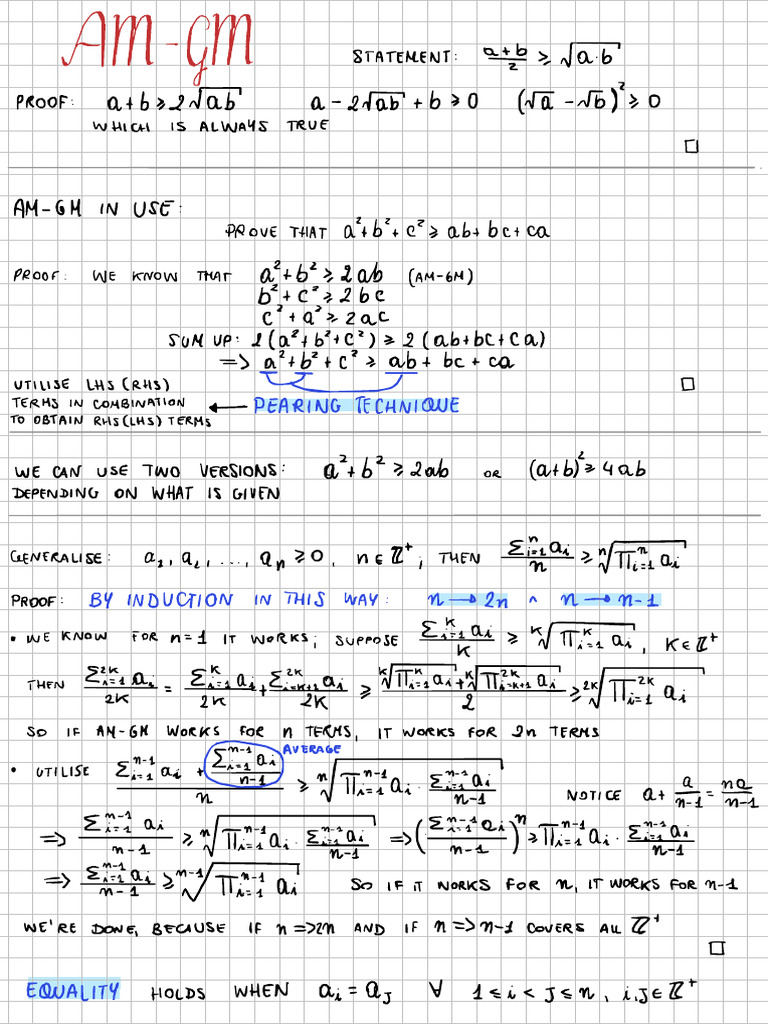 AM-GM
STATEMENT: (a+b)/2 ≥ √(a·b)
PROOF: a+b ≥ 2√(ab)   a - 2√(ab) + b ≥ 0   (√a - √b)² ≥ 0
WHICH IS ALWAYS TRUE
□
AM-GM IN USE:
PROVE THAT a²+b²+c² ≥ ab+bc+ca
PROOF: WE KNOW THAT a²+b² ≥ 2ab (AM-GM)
b²+c² ≥ 2bc
c²+a² ≥ 2ac
SUM UP: 2(a²+b²+c²) ≥ 2(ab+bc+ca)
=> a²+b²+c² ≥ ab+bc+ca
UTILISE LHS(RHS)
□
TERMS IN COMBINATION ← PEARING TECHNIQUE
TO OBTAIN RHS(LHS) TERMS
WE CAN USE TWO VERSIONS: a²+b² ≥ 2ab OR (a+b)² ≥ 4ab
DEPENDING ON WHAT IS GIVEN
GENERALISE: a₁, a₂, ..., aₙ ≥ 0, n∈ℤ⁺; THEN (∑ᵢ₌₁ⁿ aᵢ)/n ≥ ⁿ√(∏ᵢ₌₁ⁿ aᵢ)
PROOF: BY INDUCTION IN THIS WAY: n → 2n ^ n → n-1
• WE KNOW FOR n=1 IT WORKS; SUPPOSE (∑ᵢ₌₁ᴷ aᵢ)/K ≥ ᴷ√(∏ᵢ₌₁ᴷ aᵢ), K∈ℤ⁺
THEN (∑ᵢ₌₁²ᴷ aᵢ)/2K = (∑ᵢ₌₁ᴷ aᵢ)/2K + (∑ᵢ₌ₖ₊₁²ᴷ aᵢ)/2K ≥ (ᴷ√(∏ᵢ₌₁ᴷ aᵢ) + ᴷ√(∏ᵢ₌ₖ₊₁²ᴷ aᵢ))/2 ≥ ²ᴷ√(∏ᵢ₌₁²ᴷ aᵢ)
SO IF AM-GM WORKS FOR n TERMS, IT WORKS FOR 2n TERMS
• UTILISE (∑ᵢ₌₁ⁿ⁻¹ aᵢ + (∑ᵢ₌₁ⁿ⁻¹ aᵢ)/(n-1))/n ≥ ⁿ√(∏ᵢ₌₁ⁿ⁻¹ aᵢ · (∑ᵢ₌₁ⁿ⁻¹ aᵢ)/(n-1))
AVERAGE
NOTICE a + a/(n-1) = na/(n-1)
=> (∑ᵢ₌₁ⁿ⁻¹ aᵢ)/(n-1) ≥ ⁿ√(∏ᵢ₌₁ⁿ⁻¹ aᵢ · (∑ᵢ₌₁ⁿ⁻¹ aᵢ)/(n-1)) => ((∑ᵢ₌₁ⁿ⁻¹ aᵢ)/(n-1))ⁿ ≥ ∏ᵢ₌₁ⁿ⁻¹ aᵢ · (∑ᵢ₌₁ⁿ⁻¹ aᵢ)/(n-1)
=> (∑ᵢ₌₁ⁿ⁻¹ aᵢ)/(n-1) ≥ ⁿ⁻¹√(∏ᵢ₌₁ⁿ⁻¹ aᵢ) SO IF IT WORKS FOR n, IT WORKS FOR n-1
WE'RE DONE, BECAUSE IF n=>2n AND IF n=>n-1 COVERS ALL ℤ⁺
□
EQUALITY HOLDS WHEN aᵢ = aⱼ ∀ 1≤i<j≤n, i,j∈ℤ⁺